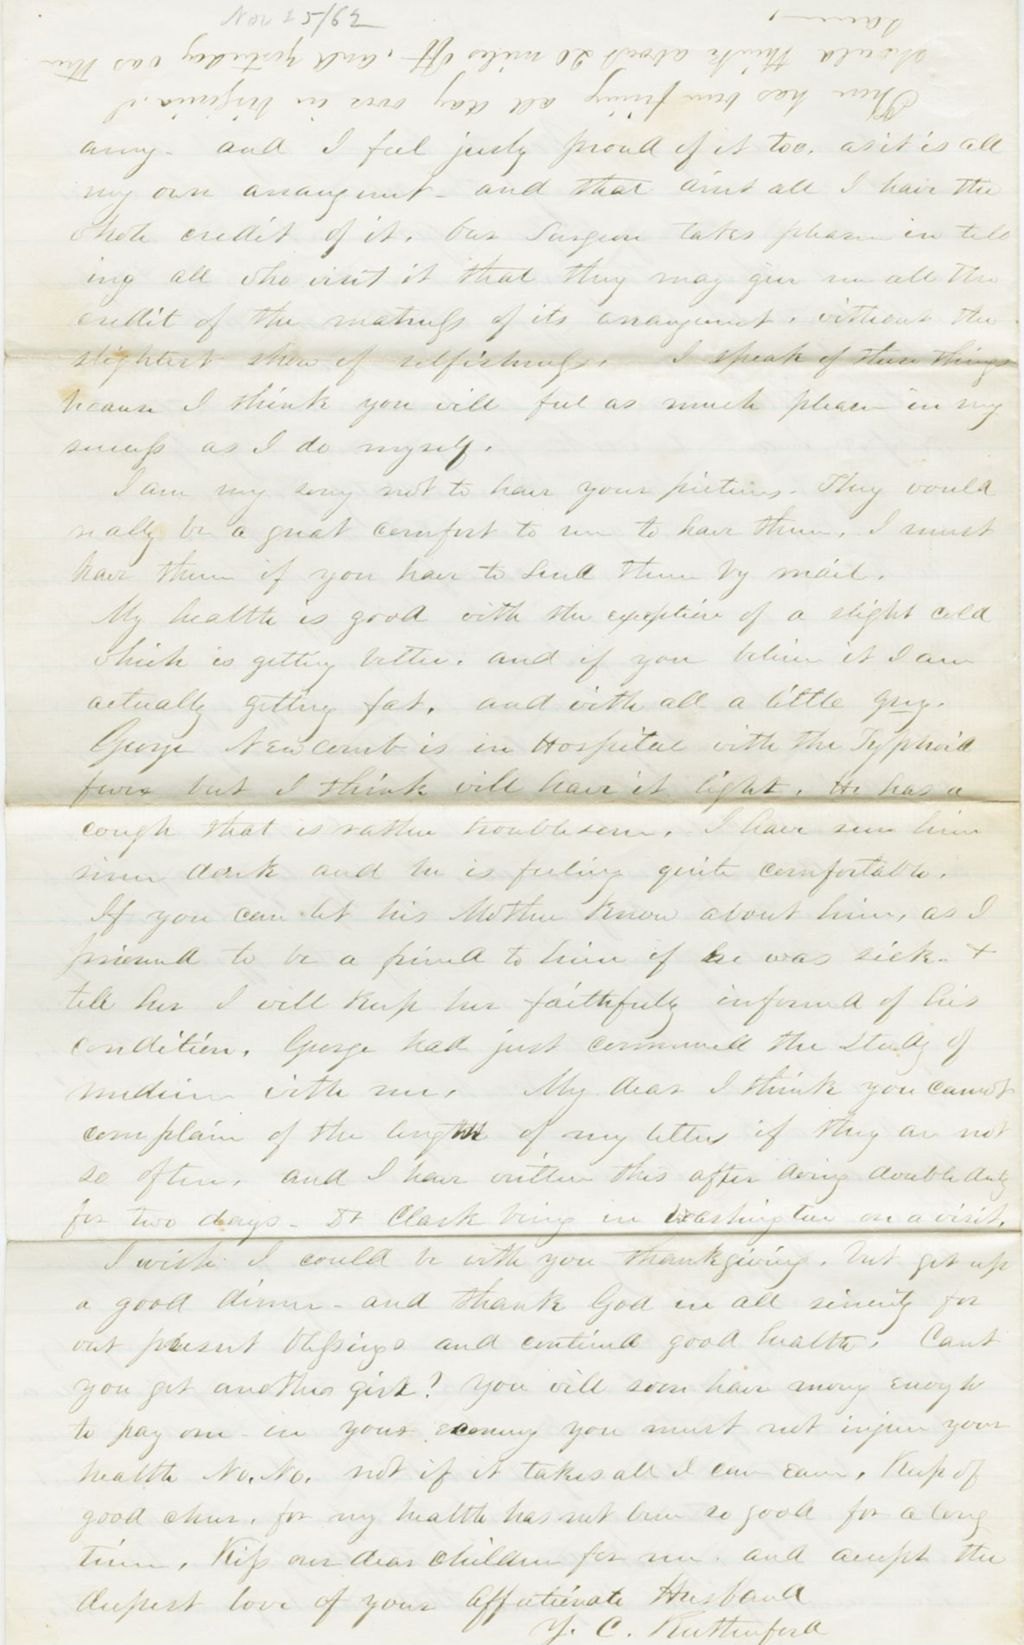 Nov 25/62
There has been firing all day over in Virginia. I
should think about 20 miles off, and yesterday was the
same,
army - and I feel justly proud of it too. as it is all
my own arrangment - and that aint all I have the
whole credit of it. Our Surgeon takes pleasure in tell
ing all who visit it that they may give me all the
credit of the neatness of its arrangement, without the
slightest show of selfishness. I speak of these things
because I think you will feel as much pleasure in my
success as I do myself.
I am very sorry not to have your pictures. They would
really be a great comfort to me to have them. I must
have them if you have to send them by mail.
My health is good with the exception of a slight cold
which is getting better. and if you believe it I am
actually getting fat. and with all a little grey.
George Newcomb is in Hospital with the Typhoid
fever but I think will have it light. He has a
cough that is rather troublesome. I have seen him
since dark and he is feeling quite comfortable.
If you can let his Mother know about him, as I
promised to be a friend to him if he was sick. +
tell her I will keep her faithfuly informed of his
condition. George had just commenced the Study of
medicine with me. My dear I think you cannot
complain of the length of my letters if they are not
so often. and I have written this after doing double duty
for two days - Dr Clark being in Washington on a visit.
I wish I could be with you thanksgiving. but get up
a good dinner - and thank God in all sincerity for
our present blessings and continued good health. Cant
you get another girl? You will soon have money enough
to pay one - in your economy you must not injure your
health No. No. not if it takes all I can earn. Keep of
good cheer. for my health has not been so good for a long
time. Kiss our dear children for me. and accept the
deepest love of your Affectionate Husband
J. C. Rutherford